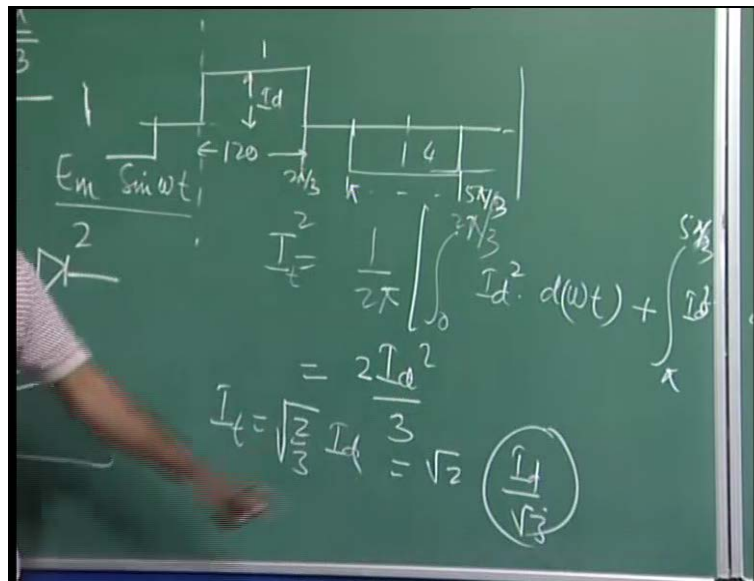 3
1
I
Id
← 120 →
2π/3
4
π - - - 5π/3
Em Sin ωt
2
It² = 1/2π [ ∫₀^{2π/3} Id² · d(ωt) + ∫_π^{5π/3} Id²
= 2Id²/3
It = √(2/3) Id = √2 (Id/√3)